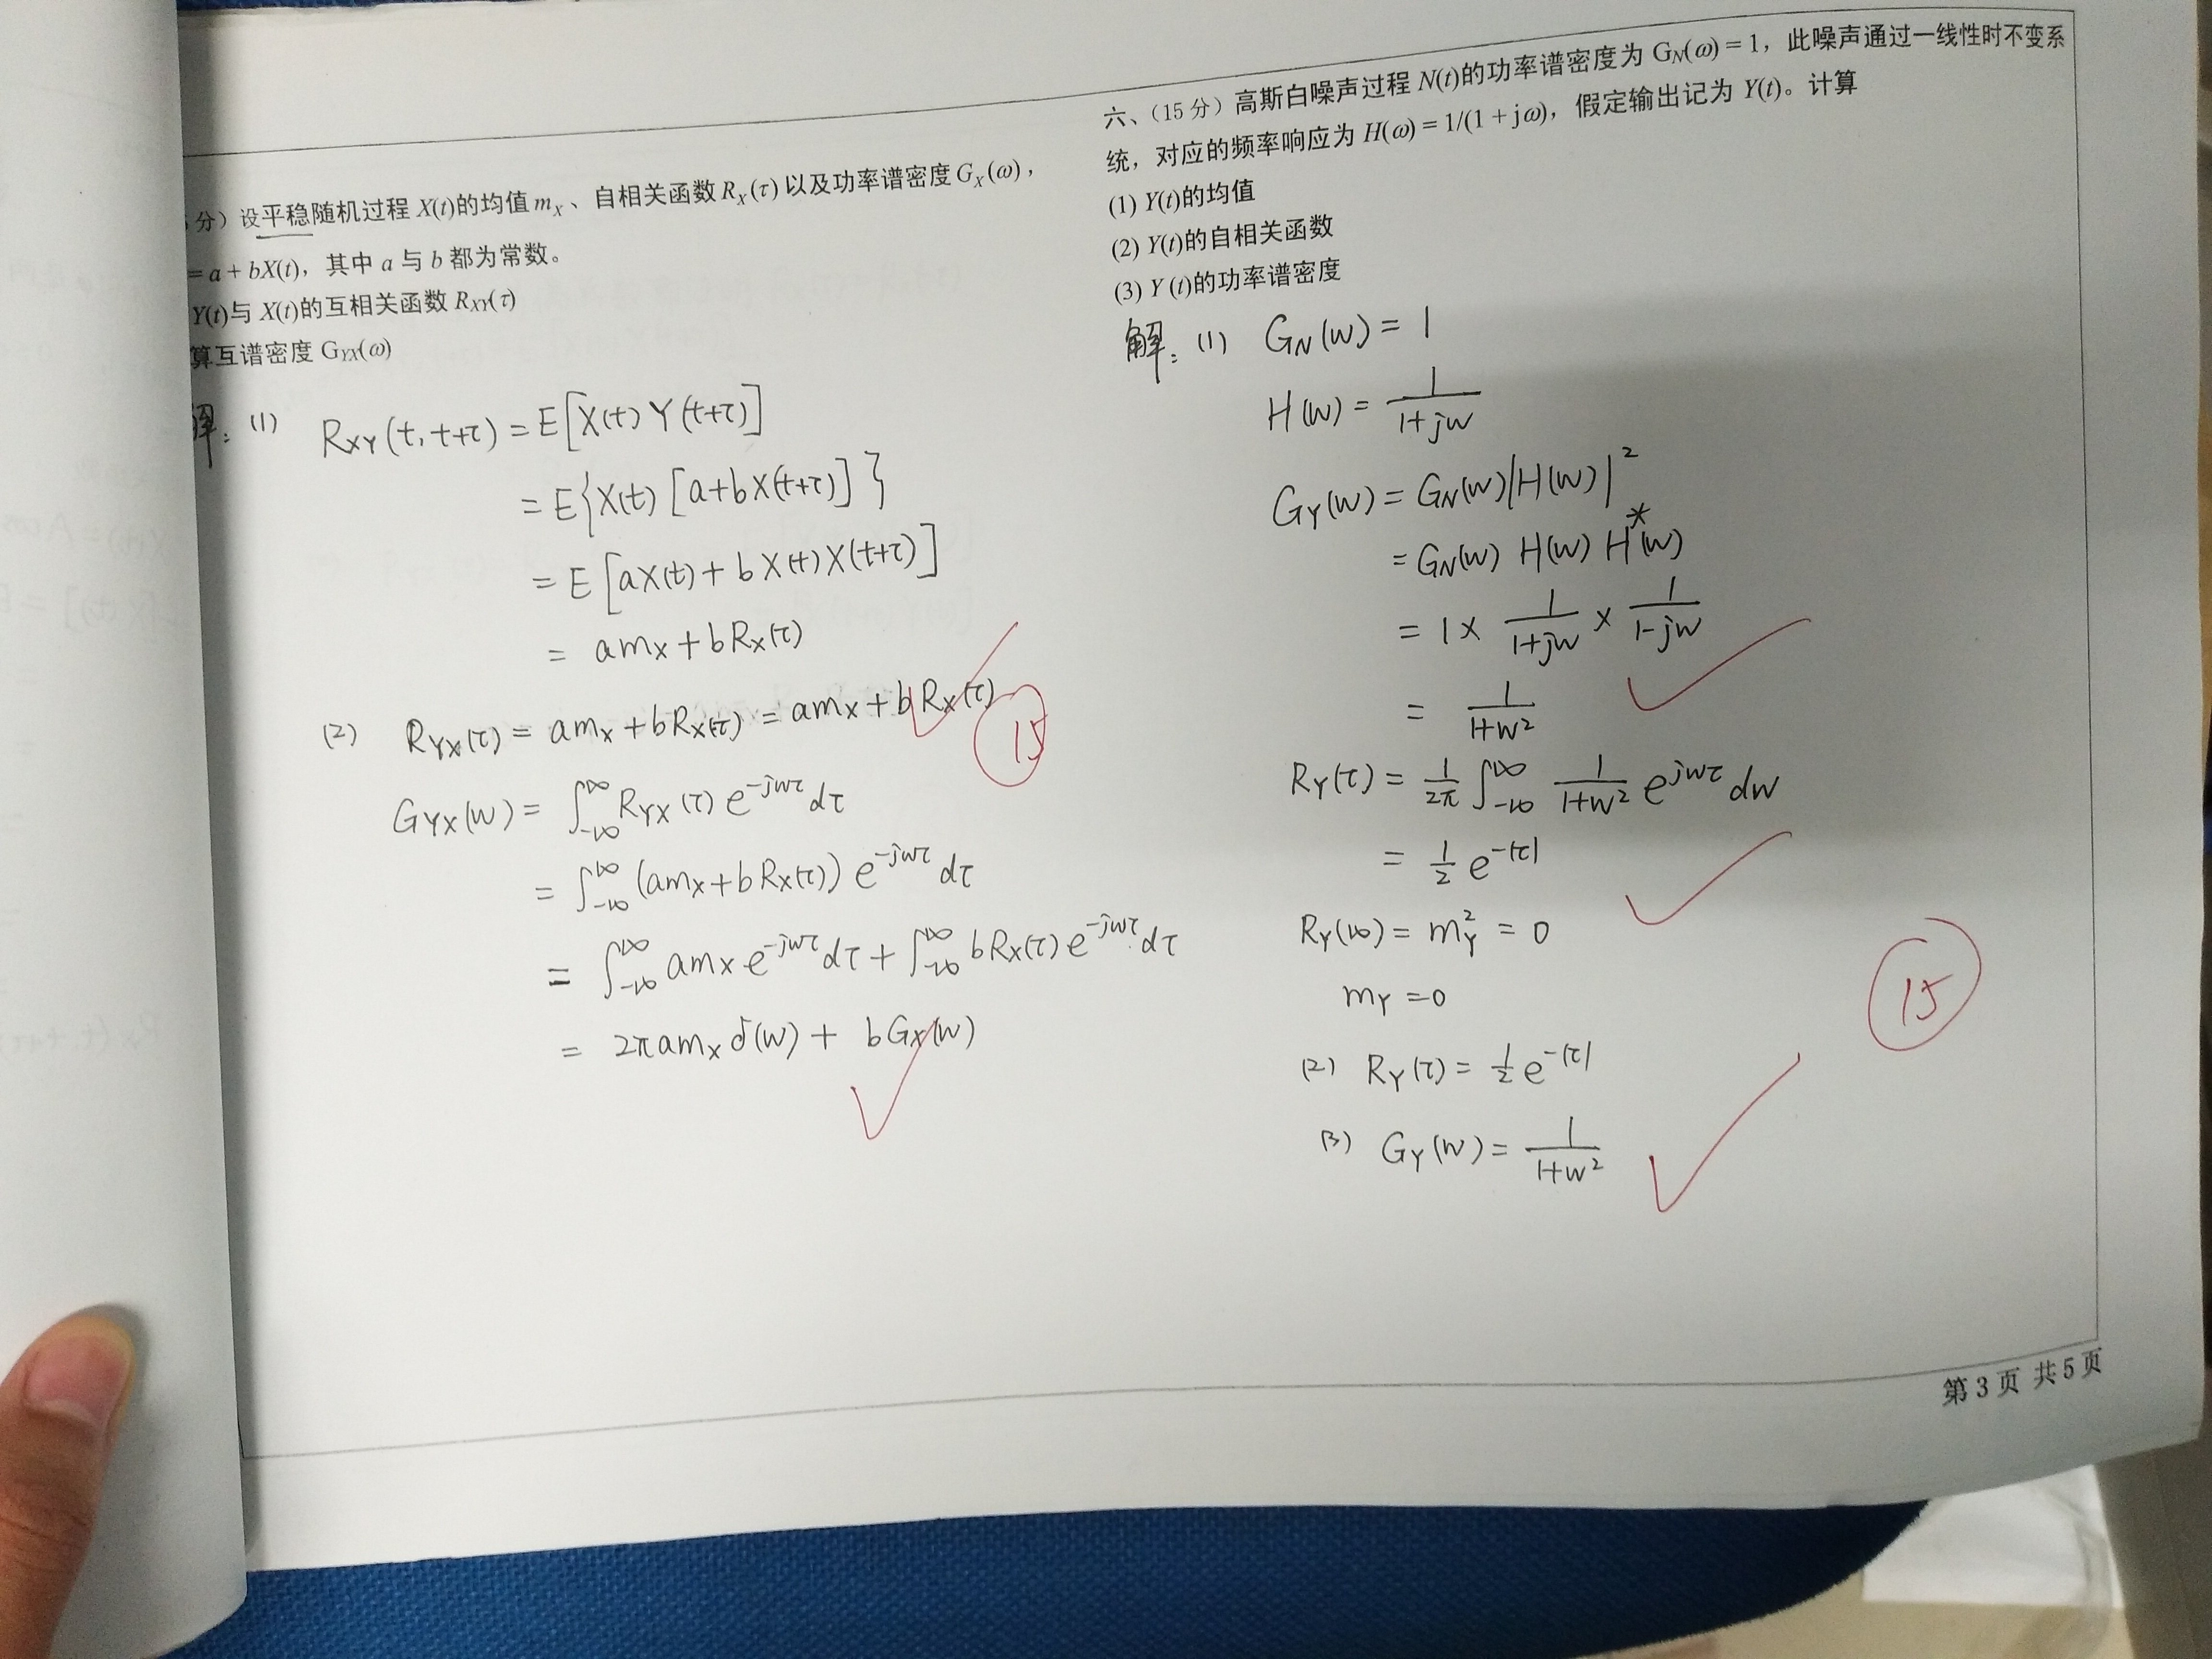 分）设平稳随机过程 X(t)的均值 m_X、自相关函数 R_X(τ) 以及功率谱密度 G_X(ω)，
= a + bX(t)，其中 a 与 b 都为常数。
Y(t)与 X(t)的互相关函数 R_XY(τ)
算互谱密度 G_YX(ω)
解: (1) R_XY(t, t+τ) = E[X(t) Y(t+τ)]
= E{X(t) [a+bX(t+τ)]}
= E[aX(t) + bX(t)X(t+τ)]
= am_X + bR_X(τ)
(2) R_YX(τ) = am_X + bR_X(τ) = am_X + bR_X(τ)
15
G_YX(w) = ∫_{-∞}^{∞} R_YX(τ) e^{-jwτ} dτ
= ∫_{-∞}^{∞} (am_X + bR_X(τ)) e^{-jwτ} dτ
= ∫_{-∞}^{∞} am_X e^{-jwτ} dτ + ∫_{-∞}^{∞} bR_X(τ) e^{-jwτ} dτ
= 2πam_X δ(w) + bG_X(w)
六、（15 分）高斯白噪声过程 N(t)的功率谱密度为 G_N(ω) = 1，此噪声通过一线性时不变系
统，对应的频率响应为 H(ω) = 1/(1 + jω)，假定输出记为 Y(t)。计算
(1) Y(t)的均值
(2) Y(t)的自相关函数
(3) Y (t)的功率谱密度
解: (1) G_N(w) = 1
H(w) = 1/(1+jw)
G_Y(w) = G_N(w)|H(w)|^2
= G_N(w) H(w) H*(w)
= 1 × 1/(1+jw) × 1/(1-jw)
= 1/(1+w^2)
R_Y(τ) = 1/2π ∫_{-∞}^{∞} 1/(1+w^2) e^{jwτ} dw
= 1/2 e^{-|τ|}
R_Y(∞) = m_Y^2 = 0
m_Y = 0
15
(2) R_Y(τ) = 1/2 e^{-|τ|}
(3) G_Y(w) = 1/(1+w^2)
第 3 页 共 5 页